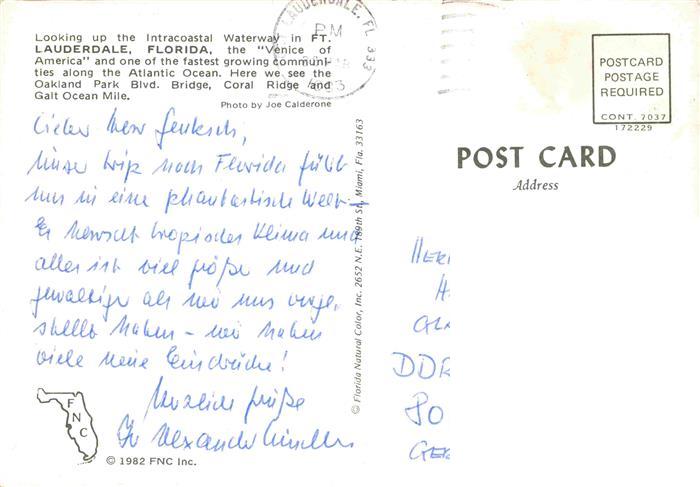 Looking up the Intracoastal Waterway in FT.
LAUDERDALE, FLORIDA, the "Venice of
America" and one of the fastest growing communi-
ties along the Atlantic Ocean. Here we see the
Oakland Park Blvd. Bridge, Coral Ridge and
Galt Ocean Mile.
Photo by Joe Calderone
Lieber Herr
unser Trip nach Florida führt
uns in eine phantastische Welt –
Es herrscht tropisches Klima und
alles ist viel größer und
gewaltiger als wir uns vorge-
stellt haben – wir haben
viele neue Eindrücke!
Herzliche Grüße
Ihr Alexander
FNC
© 1982 FNC Inc.
© Florida Natural Color, Inc. 2652 N.E. 189th St., Miami, Fla. 33163
LAUDERDALE, FL 333
PM
POSTCARD
POSTAGE
REQUIRED
CONT. 7037
172229
POST CARD
Address
DDR